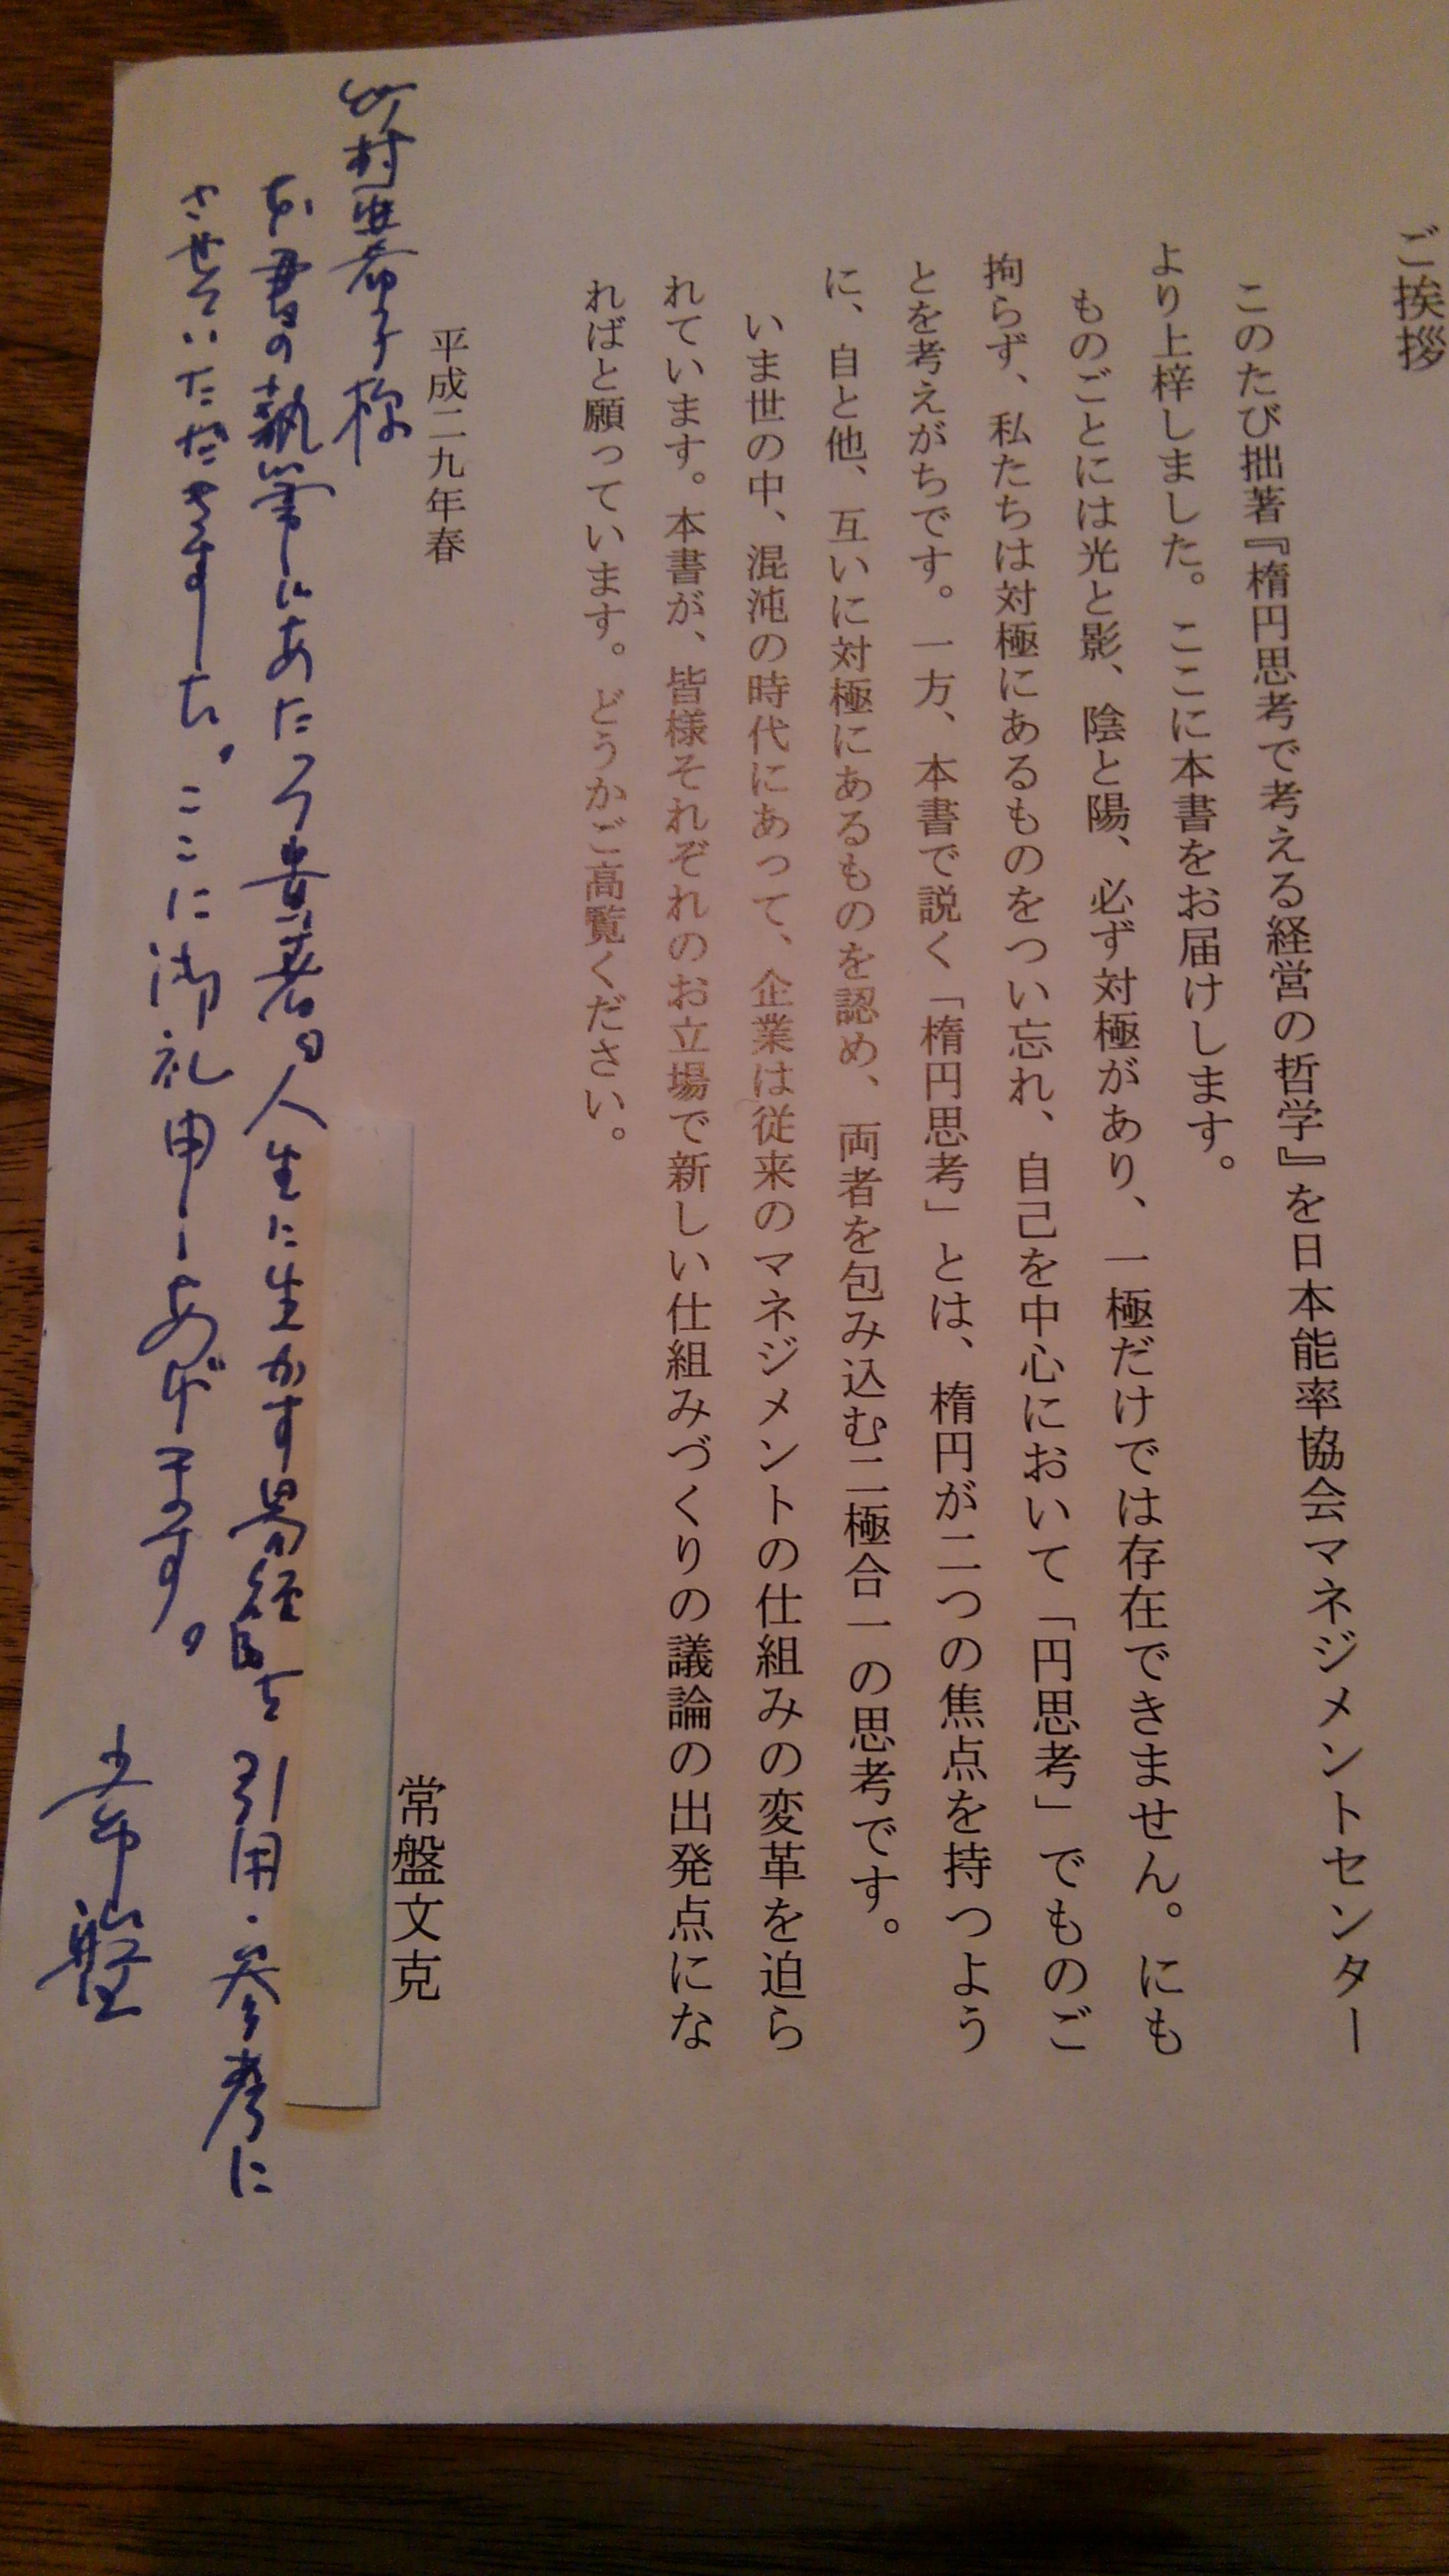 ご挨拶
このたび拙著『楕円思考で考える経営の哲学』を日本能率協会マネジメントセンター
より上梓しました。ここに本書をお届けします。
ものごとには光と影、陰と陽、必ず対極があり、一極だけでは存在できません。にも
拘らず、私たちは対極にあるものをつい忘れ、自己を中心において「円思考」でものご
とを考えがちです。一方、本書で説く「楕円思考」とは、楕円が二つの焦点を持つよう
に、自と他、互いに対極にあるものを認め、両者を包み込む二極合一の思考です。
いま世の中、混沌の時代にあって、企業は従来のマネジメントの仕組みの変革を迫ら
れています。本書が、皆様それぞれのお立場で新しい仕組みづくりの議論の出発点にな
ればと願っています。どうかご高覧ください。
平成二九年春
常盤文克
竹村亞希子様
本書の執筆にあたって貴著『人生に生かす易経』を引用・参考に
させていただきました。ここに御礼申しあげます。
常盤